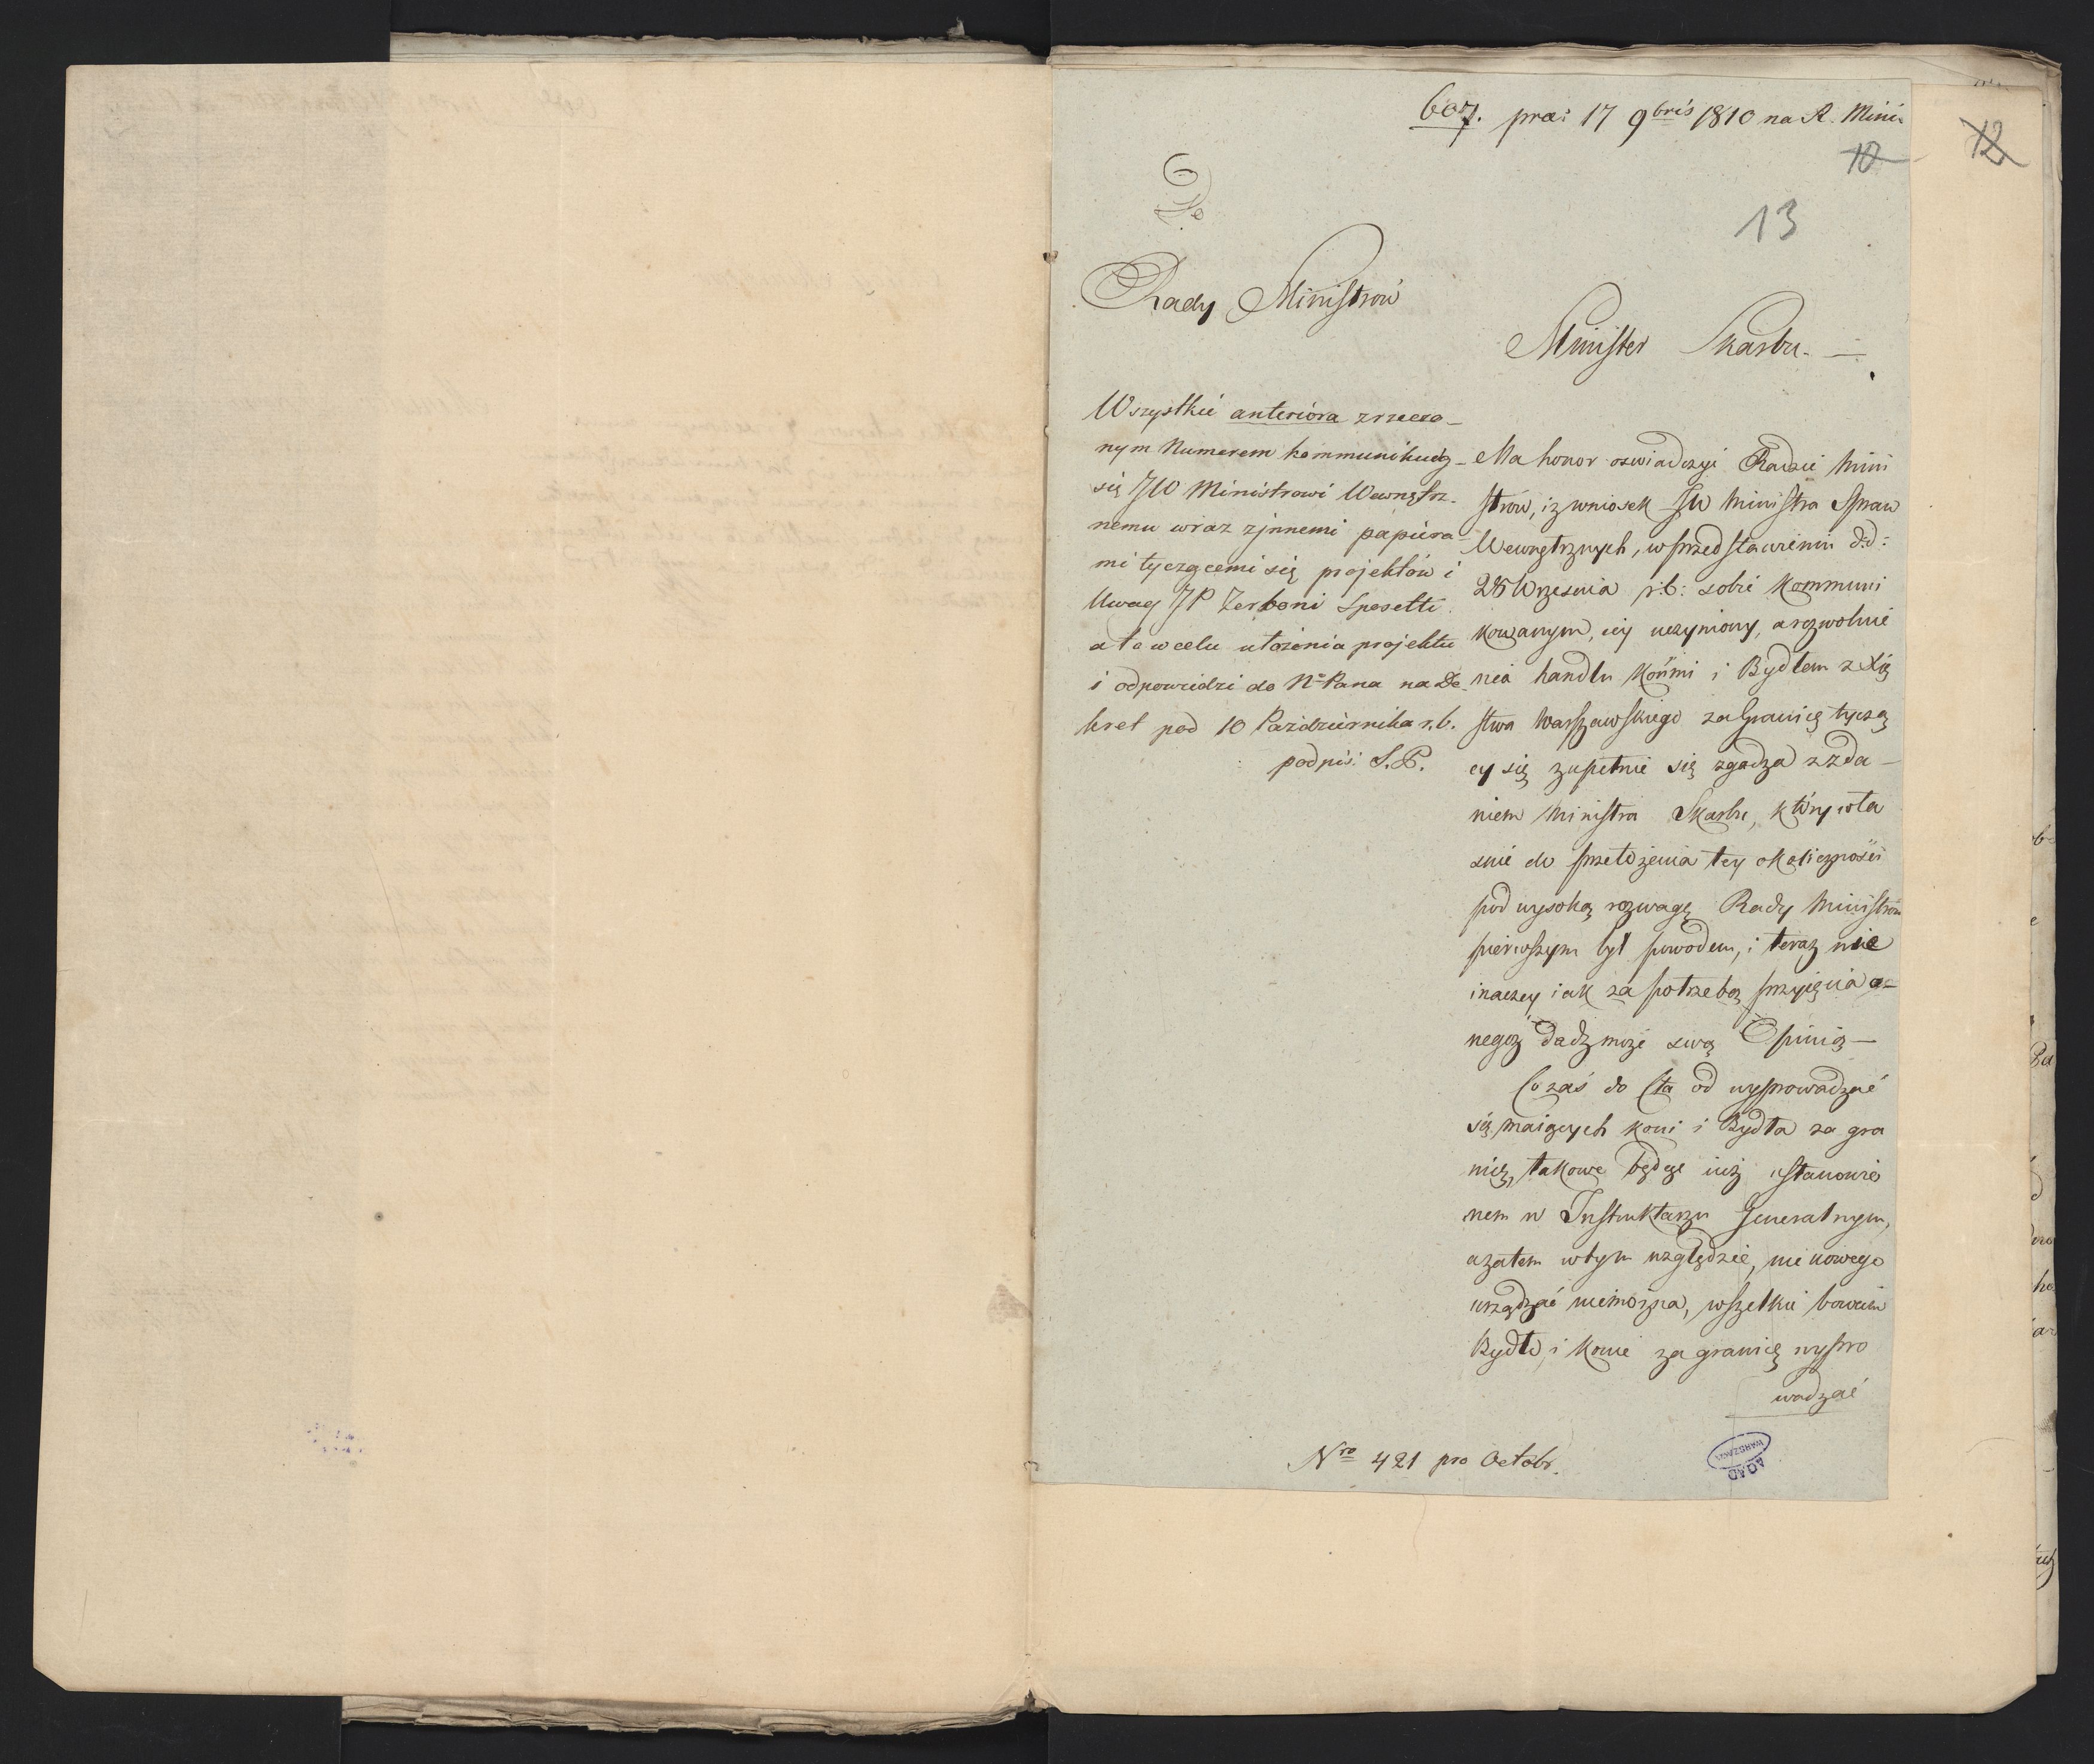 607. prae: 17 9bris 1810 na R. Mini:
10
12
13
Do
Rady Ministrow
Minister Skarbu.
Wszystkie anteriora z rzeczo-
nym Numerem kommunikuią
się JW Ministrowi Wewnętrz-
nemu wraz z jnnemi papiera-
mi tyczącemi się projektów i
Uwag JP Zerboni Sposetti
a to w celu ułożenia projektu
i odpowiedzi do No Pana na De-
kret pod 10 Pazdziernika r. b.
podpis: S. P.
Ma honor oswiadczyć Radzie Mini
strów, iż wniosek JW Ministra Spraw
Wewnętrznych, w przedstawieniu d:d:
28 Wrzesnia r:b: sobie kommuni
kowanym, iey uczyniony, a rozwolnie
nia handlu Końmi i Bydłem z Xię
stwa Warszawskiego za Granicę tyczą
cy się zupełnie się zgadza z zda-
niem Ministra Skarbu, który wła
snie do przełożenia tey okoliczności
pod wysoką rozwagę Rady Ministrów
pierwszym był powodem, i teraz nie
inaczey iak za potrzebą przyięcia o-
negoż dadz może swą Opinią —
Co zaś do Cła od wyprowadzać
się maiących koni i Bydła za gra
nicę, takowe będąc iuż ustanowio
nem w Instruktarzu Generalnym,
a zatem w tym względzie, nic nowego
urządzać niemożna, wszelkie bowiem
Bydło, i Konie za granicę wypro
wadzać
Nro 421 pro Octobr.
AGAD
WARSZAWA